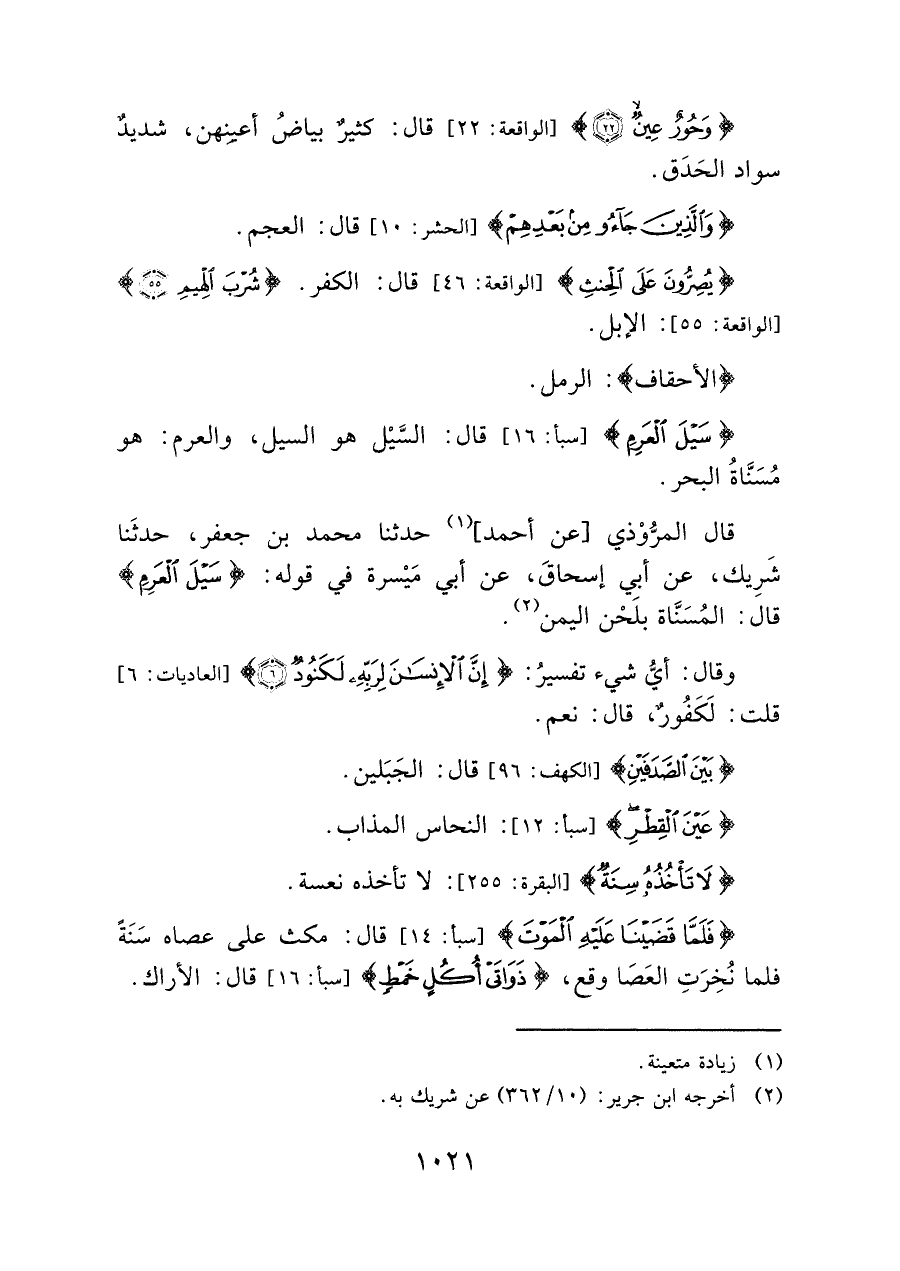 ﴿وَحُورٌ عِينٌ ۝٢٢﴾ [الواقعة: ٢٢] قال: كثيرٌ بياضُ أعينِهن، شديدٌ
سواد الحَدَق.
﴿وَٱلَّذِينَ جَآءُو مِنۢ بَعْدِهِمْ﴾ [الحشر: ١٠] قال: العجم.
﴿يُصِرُّونَ عَلَى ٱلْحِنثِ﴾ [الواقعة: ٤٦] قال: الكفر. ﴿شُرْبَ ٱلْهِيمِ ۝٥٥﴾
[الواقعة: ٥٥]: الإبل.
﴿الأحقاف﴾: الرمل.
﴿سَيْلَ ٱلْعَرِمِ﴾ [سبأ: ١٦] قال: السَّيْل هو السيل، والعرم: هو
مُسَنَّاةُ البحر.
قال المرُّوْذي [عن أحمد](١) حدثنا محمد بن جعفر، حدثَنا
شَرِيك، عن أبي إسحاقَ، عن أبي مَيْسرة في قوله: ﴿سَيْلَ ٱلْعَرِمِ﴾
قال: المُسَنَّاة بلَحْن اليمن(٢).
وقال: أيُّ شيء تفسيرُ: ﴿إِنَّ ٱلْإِنسَٰنَ لِرَبِّهِۦ لَكَنُودٌ ۝٦﴾ [العاديات: ٦]
قلت: لَكَفُورٌ، قال: نعم.
﴿بَيْنَ ٱلصَّدَفَيْنِ﴾ [الكهف: ٩٦] قال: الجَبَلين.
﴿عَيْنَ ٱلْقِطْرِۖ﴾ [سبأ: ١٢]: النحاس المذاب.
﴿لَا تَأْخُذُهُۥ سِنَةٌ﴾ [البقرة: ٢٥٥]: لا تأخذه نعسة.
﴿فَلَمَّا قَضَيْنَا عَلَيْهِ ٱلْمَوْتَ﴾ [سبأ: ١٤] قال: مكث على عصاه سَنَةً
فلما نُخِرَتِ العَصَا وقع، ﴿ذَوَاتَىْ أُكُلٍ خَمْطٍ﴾ [سبأ: ١٦] قال: الأراك.
(١) زيادة متعينة.
(٢) أخرجه ابن جرير: (١٠/ ٣٦٢) عن شريك به.
١٠٢١